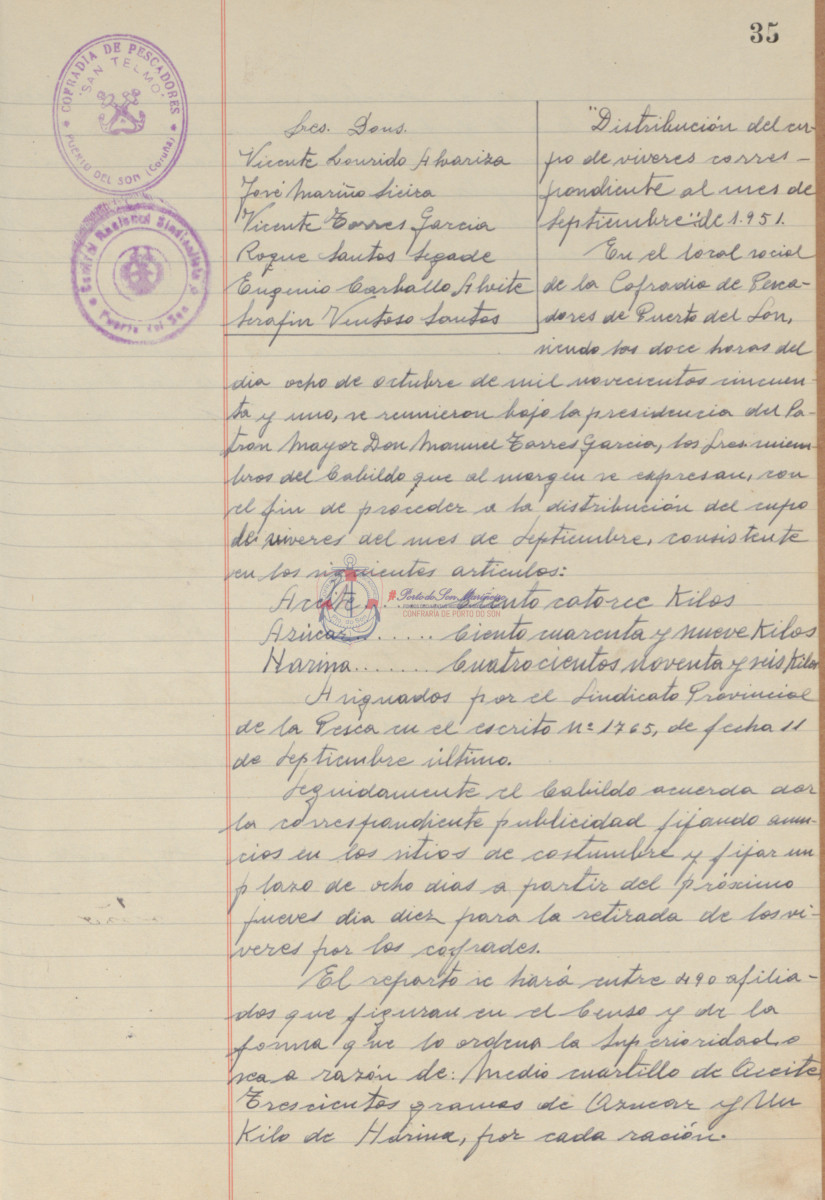 35
COFRADIA DE PESCADORES
"SAN TELMO"
PUERTO DEL SON (Coruña)
Central Nacional Sindicalista
Puerto del Son
Sres. Dons.
Vicente Lourido Alvariza
José Mariño Sieira
Vicente Torres Garcia
Roque Santos Segade
Eugenio Carballo Alvite
Serafin Ventoso Santos
"Distribución del cu-
po de viveres corres-
pondiente al mes de
Septiembre" de 1.951.
En el local social
de la Cofradia de Pesca-
dores de Puerto del Son,
siendo las doce horas del
dia ocho de octubre de mil novecientos cincuen-
ta y uno, se reunieron bajo la presidencia del Pa-
tron Mayor Don Manuel Torres Garcia, los Sres. miem-
bros del Cabildo que al margen se expresan, con
el fin de proceder a la distribución del cupo
de viveres del mes de Septiembre, consistente
en los siguientes articulos:
Aceite... Ciento catorce Kilos
Porto do Son Mariñeiro
CONFRARIA DE PORTO DO SON
Azúcar....... Ciento cuarenta y nueve Kilos
Harina........ Cuatrocientos noventa y seis Kilos
Asignados por el Sindicato Provincial
de la Pesca en el escrito nº 1765, de fecha 11
de Septiembre último.
Seguidamente el Cabildo acuerda dar
la correspondiente publicidad fijando anun-
cios en los sitios de costumbre y fijar un
plazo de ocho dias a partir del próximo
jueves dia diez para la retirada de los vi-
veres por los cofrades.
El reparto se hará entre 490 afilia-
dos que figuran en el Censo y de la
forma que lo ordena la Superioridad o
sea a razón de: Medio cuartillo de Aceite,
Trescientos gramos de Azucar y Un
Kilo de Harina, por cada ración.